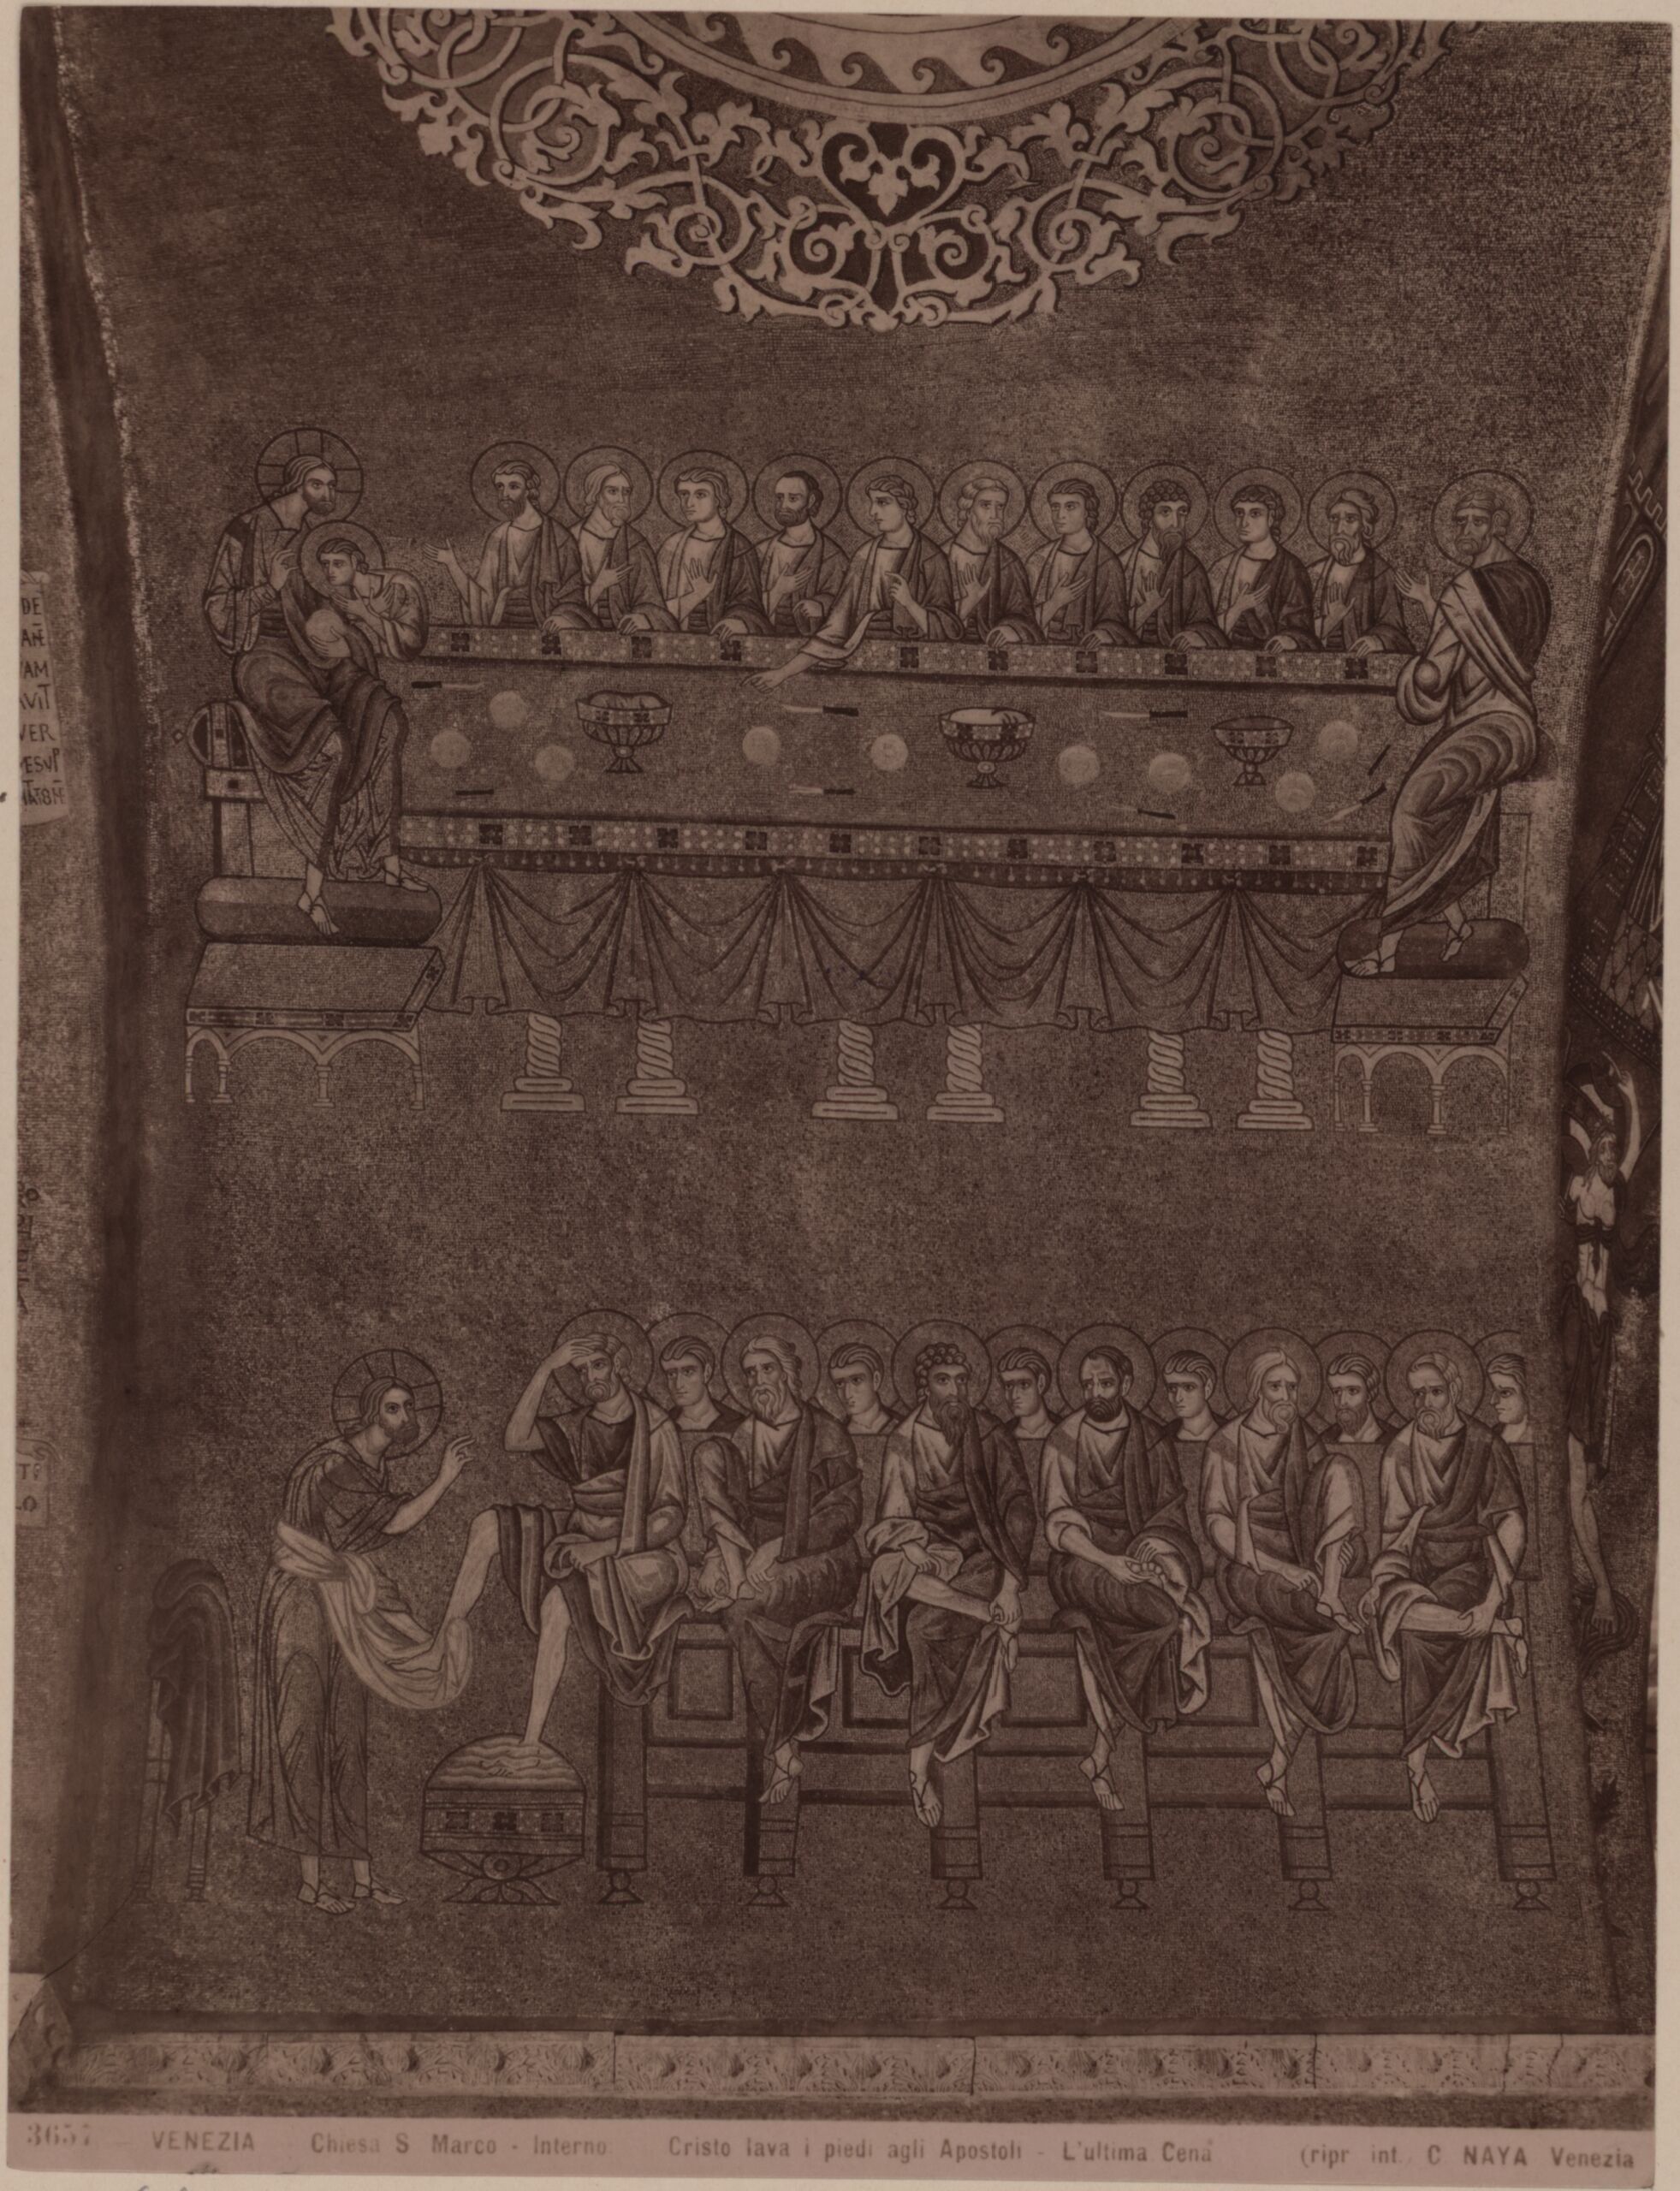 DE
AM
VIT
VER
3657 VENEZIA Chiesa S Marco - Interno Cristo lava i piedi agli Apostoli - L'ultima Cena (ripr int. C NAYA Venezia